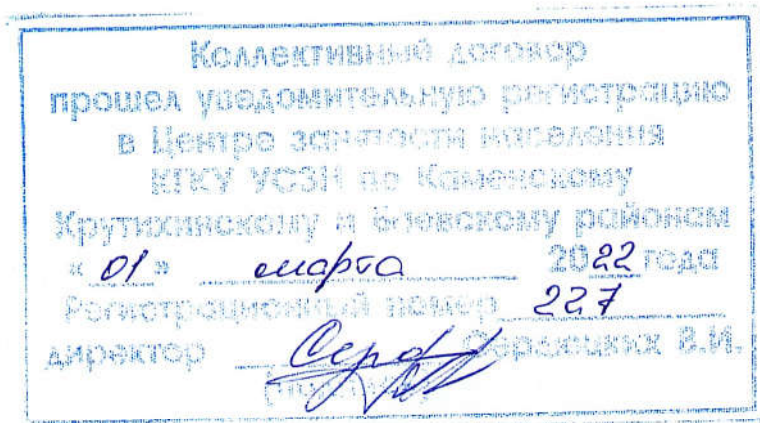 Коллективный договор
прошел уведомительную регистрацию
в Центре занятости населения
КГКУ УСЗН по Каменскому
Крутихинскому и Баевскому районам
« 01 » марта 2022 года
Регистрационный номер 227
директор В.И.